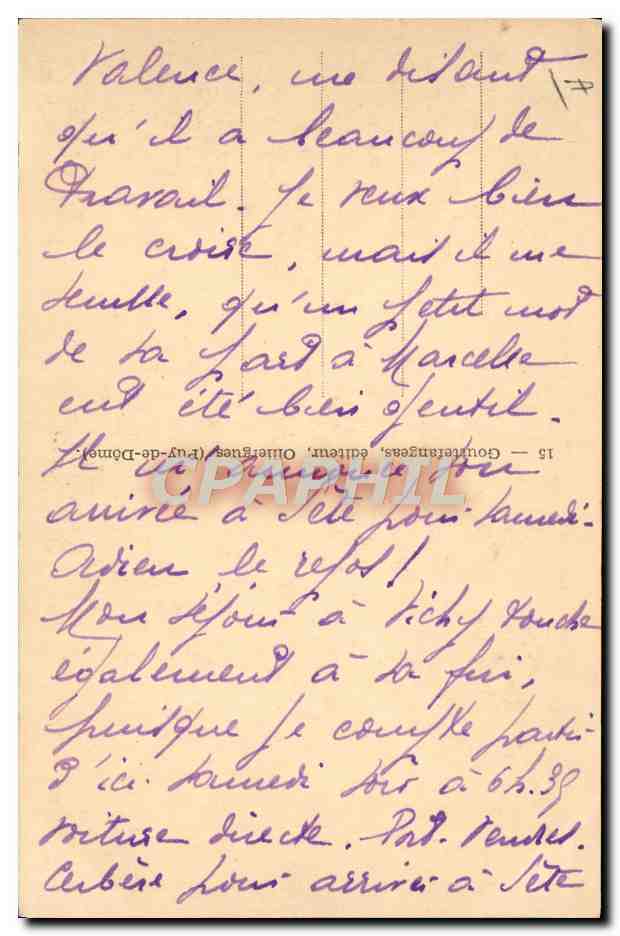 Valence, me disant
17
qu'il a beaucoup de
travail. Je veux bien
le croire, mais il me
semble, qu'un petit mot
de sa part à Marcelle
eut été bien gentil.
15 — Gouttefangeas, éditeur, Olliergues (Puy-de-Dôme).
Il m'annonce son
CPAPHIL
arrivée à Sète pour samedi.
Adieu le repos !
Mon séjour à Vichy touche
également à sa fin,
puisque je compte partir
d'ici samedi soir à 6h.35
voiture directe. Port-Vendres.
Cerbère pour arriver à Sète